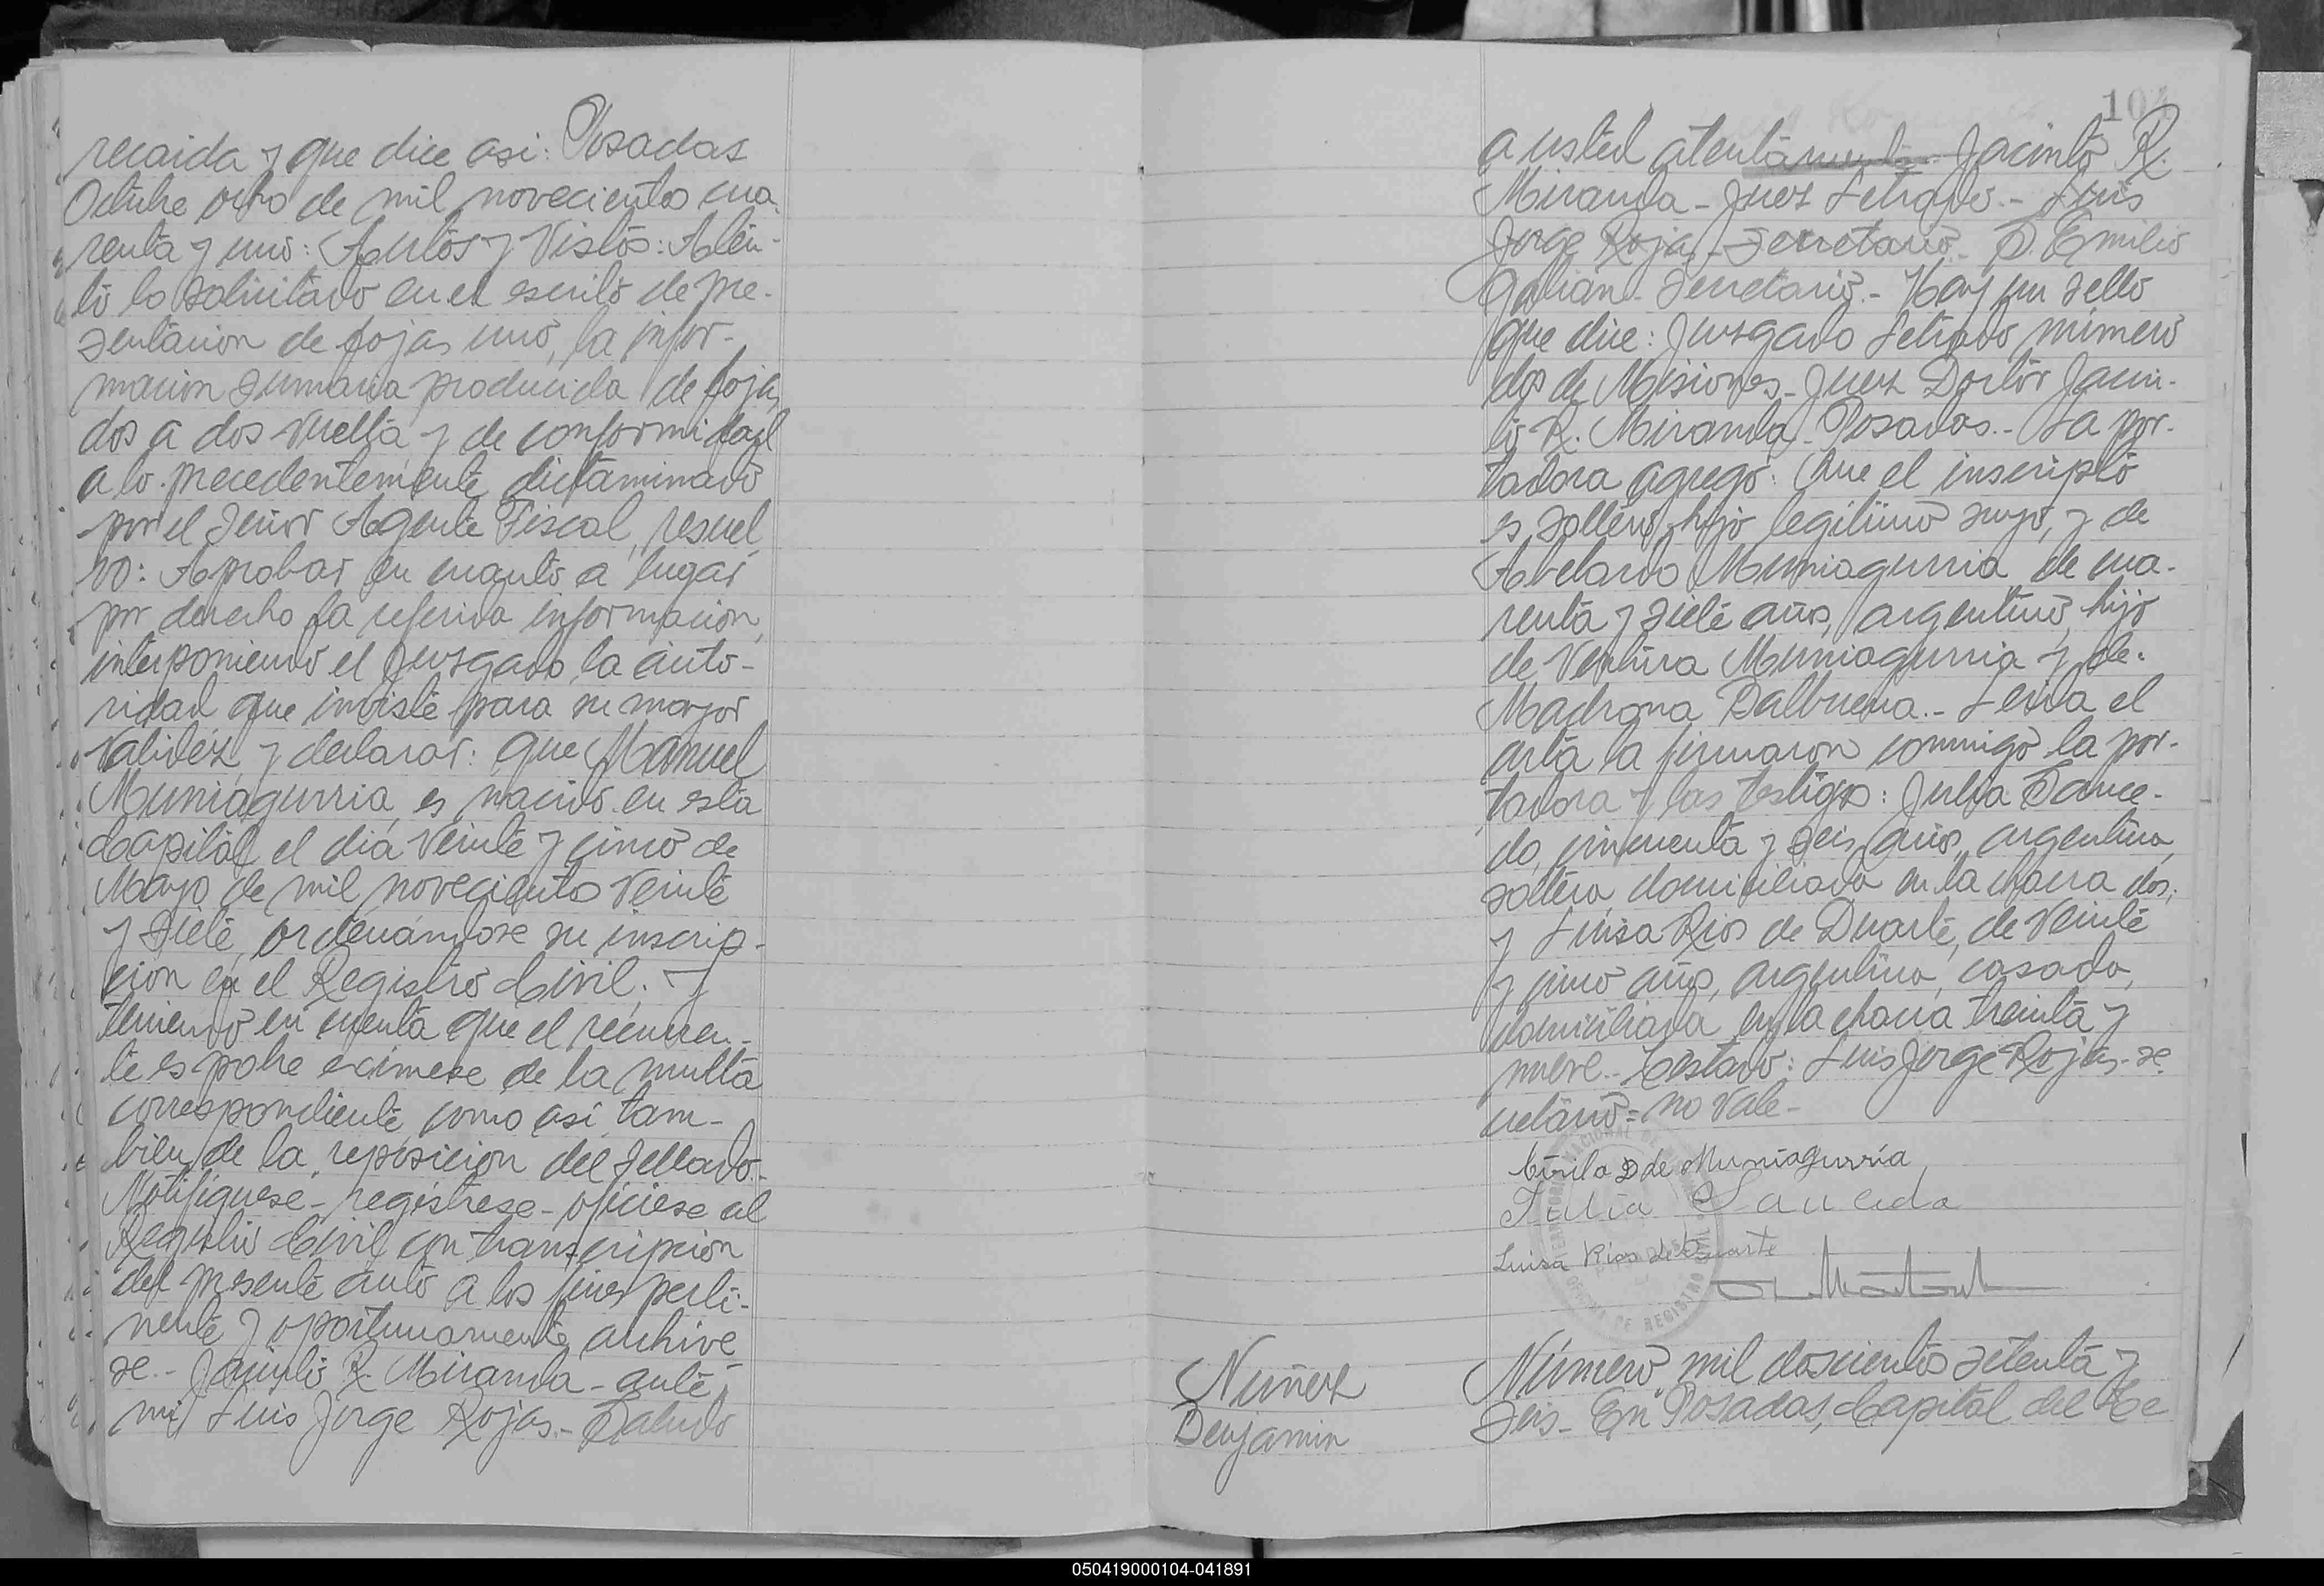 recaida y que dice asi: Posadas
Octubre ocho de mil novecientos cua-
renta y uno: Autos y Vistos: Aten-
to lo solicitado en el escrito de pre-
sentacion de fojas uno, la infor-
macion sumaria producida de fojas
dos a dos vuelta y de conformidad
a lo precedentemente dictaminado
por el Señor Agente Fiscal, resuel
vo: Aprobar en cuanto a lugar
por derecho la referida informacion,
interponiendo el Juzgado la auto-
ridad que inviste para su mayor
validéz y declarar: que Manuel
Muniagurria, es nacido en esta
Capital el dia veinte y cinco de
Mayo de mil novecientos veinte
y siete, ordenándose su inscrip-
cion en el Registro Civil; y
teniendo en cuenta que el recurren-
te es pobre eximese de la multa
correspondiente como asi tam-
bien de la reposicion del sellado.-
Notifiquese - registrese - ofíciese al
Registro Civil con transcripcion
del presente auto a los fines perti-
nente y oportunamente archive
se.- Jacinto R. Miranda - ante
mi Luis Jorge Rojas.- Saludo
a usted atentamente Jacinto R.
Miranda - Juez Letrado.- Luis
Jorge Rojas - Secretario - D. Emilio
Galian - Secretario.- Hay un sello
que dice: Juzgado Letrado número
dos de Misiones - Juez Doctor Jacin-
to R. Miranda - Posadas.- La por-
tadora agregó: Que el inscripto
es soltero, hijo legitimo suyo, y de
Abelardo Muniagurria de cua-
renta y siete años, argentino, hijo
de Ventura Muniagurria y de
Madrona Balbuena.- Leida el
acta la firmaron conmigo la por-
tadora y las testigos: Julia Sauce-
do, cincuenta y seis años, argentina,
soltera, domiciliada en la chacra dos;
y Luisa Rios de Duarte, de veinte
y cinco años, argentina, casada,
domiciliada en la chacra treinta y
nueve.- Testado: Luis Jorge Rojas - se
cretario = no vale -
Cirila D de Muniagurria
Julia Sauceda
Luisa Rios de Duarte
OFICINA DE REGISTRO CIVIL
Nuñez
Benjamin
Número mil doscientos setenta y
seis - En Posadas, Capital del Te
050419000104-041891